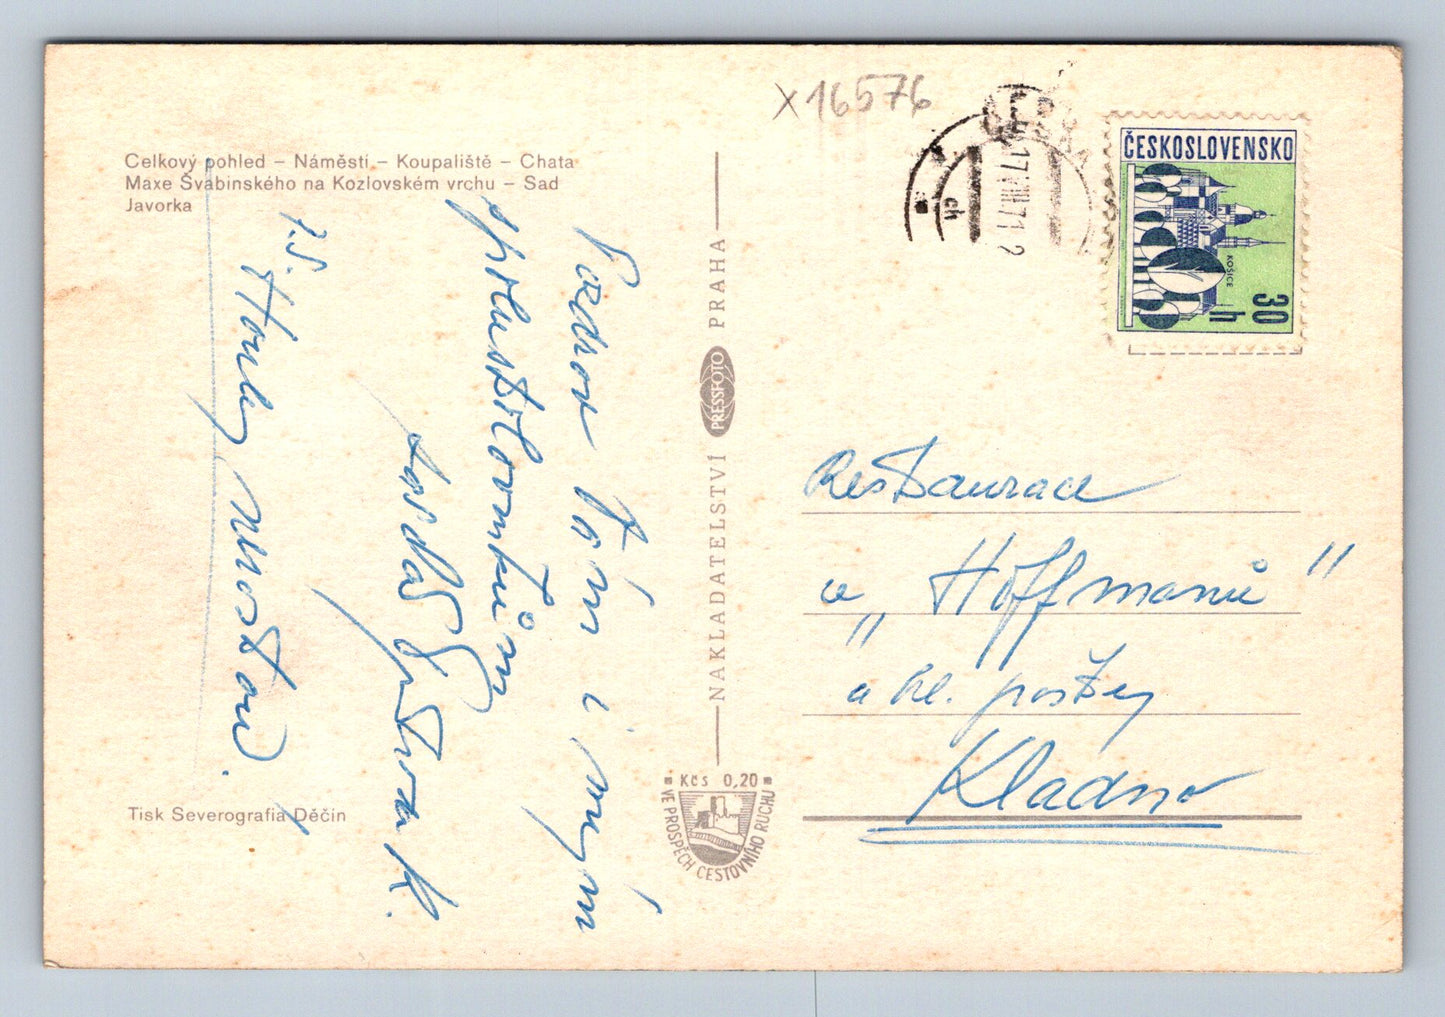 X16576
Celkový pohled – Náměstí – Koupaliště – Chata
Maxe Švabinského na Kozlovském vrchu – Sad
Javorka
Pozdrav Vám i mým
spolustolovníkům
K.
P.S.
NAKLADATELSTVÍ PRESSFOTO PRAHA
Kčs 0,20
VE PROSPĚCH CESTOVNÍHO RUCHU
Tisk Severografia Děčín
17.VIII.71
ch
ČESKOSLOVENSKO
KOŠICE
30
h
Restaurace
u „Hoffmanů"
u hl. pošty
Kladno